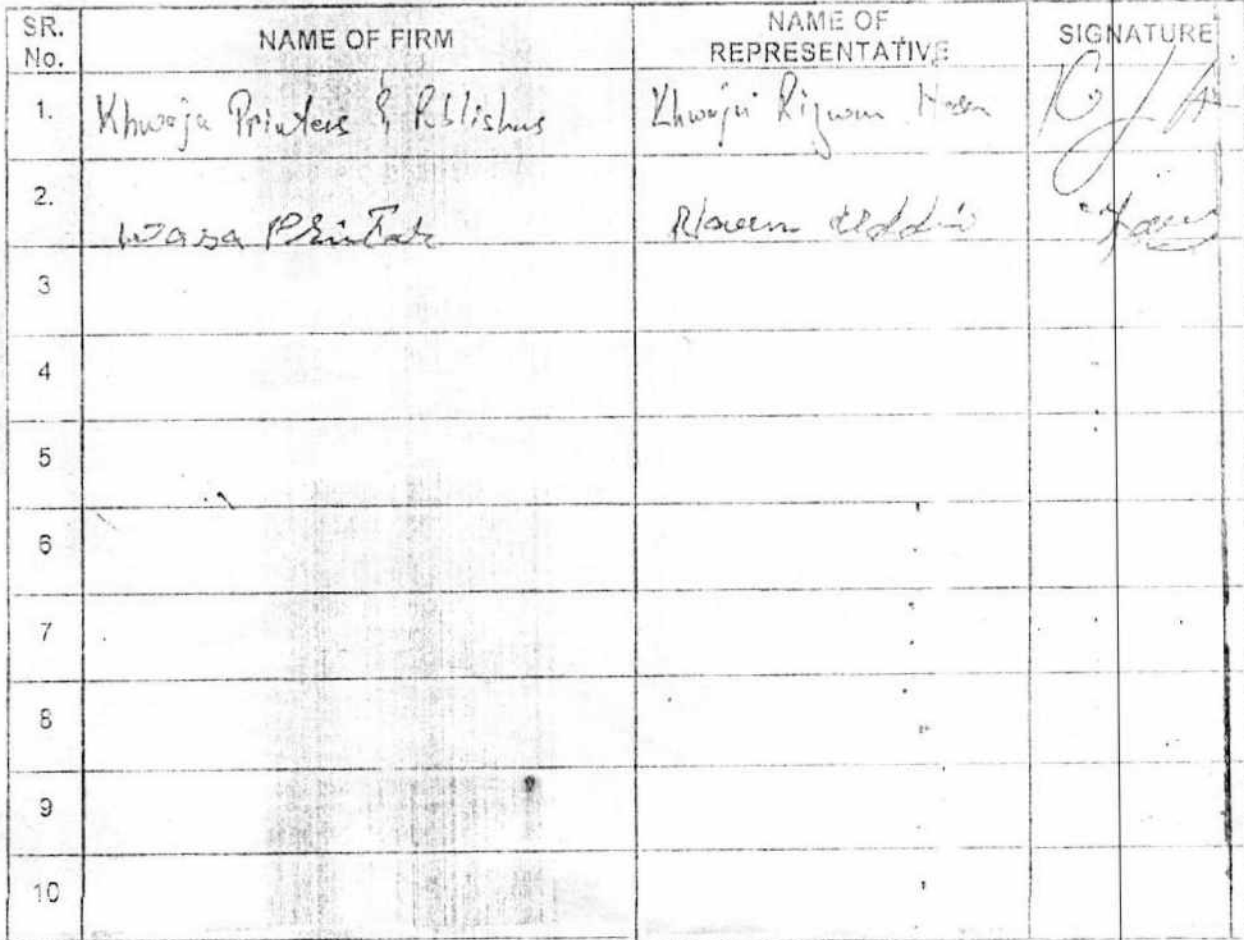 SR. No. NAME OF FIRM NAME OF REPRESENTATIVE SIGNATURE
1. Khwaja Printers & Publishers Khwaja Rizwan Hasan
2. Wasa Printer Uddin
3
4
5
6
7
8
9
10